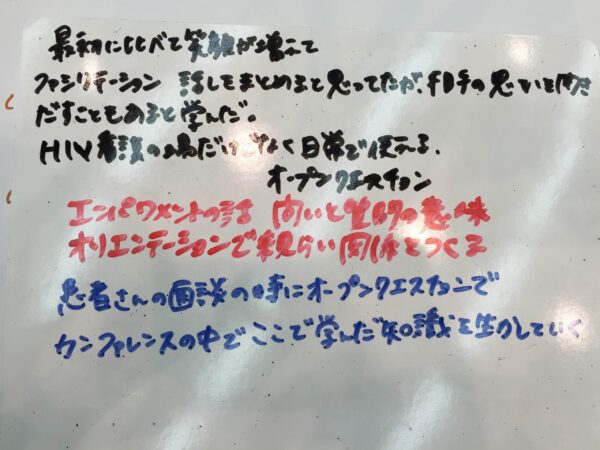 最初に比べて笑顔が増えて
ファシリテーション 話しをまとめると思ってたが、相手の思いを聞き
だすこともあると学んだ。
HIV看護の場だけでなく日常で使える。
オープンクエスチョン
エンパワメントの話 問いと質問の意味
オリエンテーションで親しい関係をつくる
患者さんの面談の時にオープンクエスチョンで
カンファレンスの中でここで学んだ知識を生かしていく